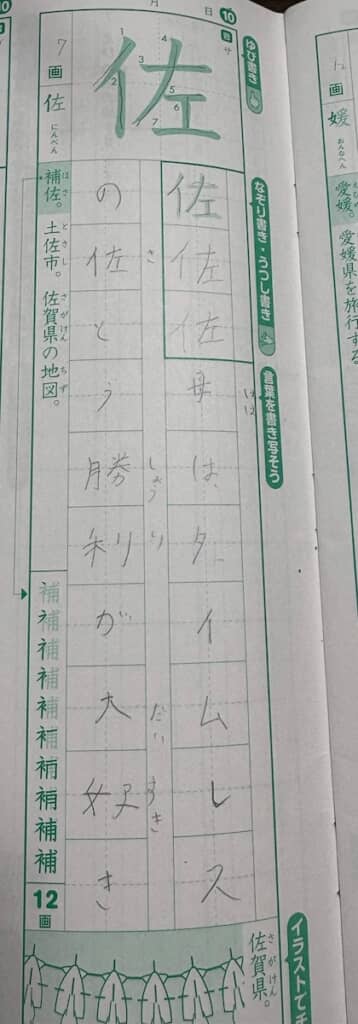 月
日
10
ゆび書き
なぞり書き・うつし書き
言葉を書き写そう
音
サ
佐
1
2
3
4
5
6
7
佐佐佐
はは
母は、タイムレス
さ しょうり だいすき
の佐とう勝利が大好き
7画
佐
にんべん
ほさ とさし さがけん ちず
補佐。土佐市。佐賀県の地図。
補補補補補補補補補補
12画
さがけん
佐賀県。
イラストでチ
画
媛
おんなへん
愛媛。愛媛県を旅行する
10